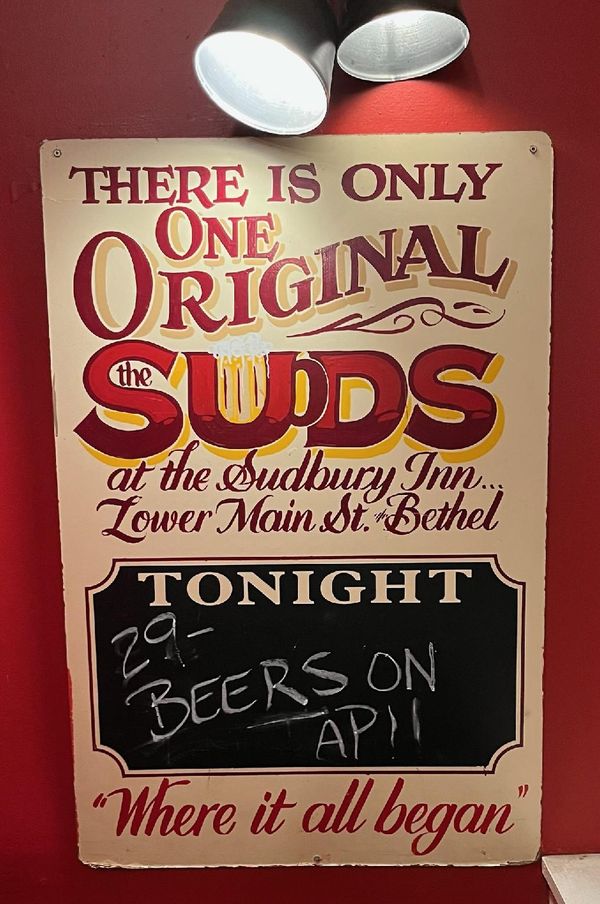 THERE IS ONLY
ONE
ORIGINAL
the SUDS
at the Sudbury Inn...
Lower Main St. Bethel
TONIGHT
29-
BEERS ON
TAP!!
"Where it all began"